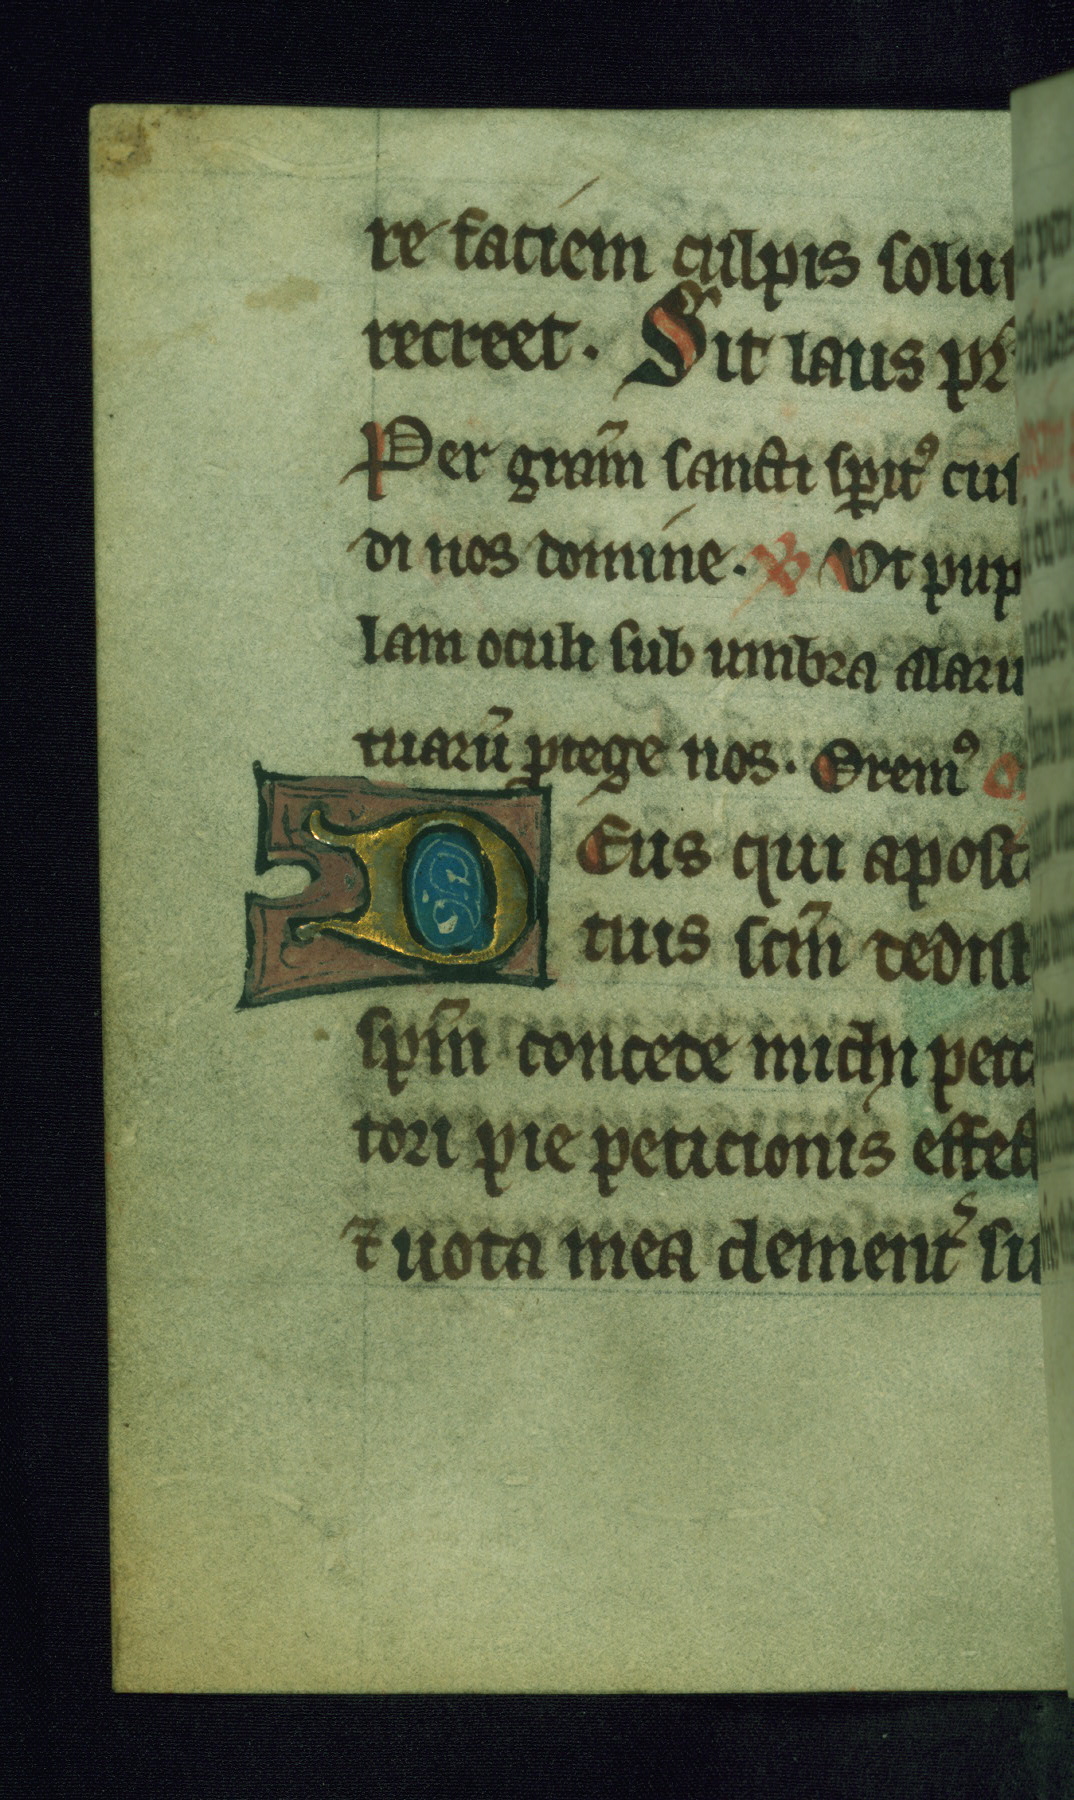 re faciem culpis solui
recreet. Sit laus pr̄
Per gram̄ sancti spirit⁹ cus
di nos domine. ℣ Ut pup
lam oculi sub umbra alaru
tuarū ꝓtege nos. Orem⁹ o
DEus qui apost
tuis scm̄ dedist
spm̄ concede michi pecc
tori pie peticionis effect
⁊ uota mea clement̾ su